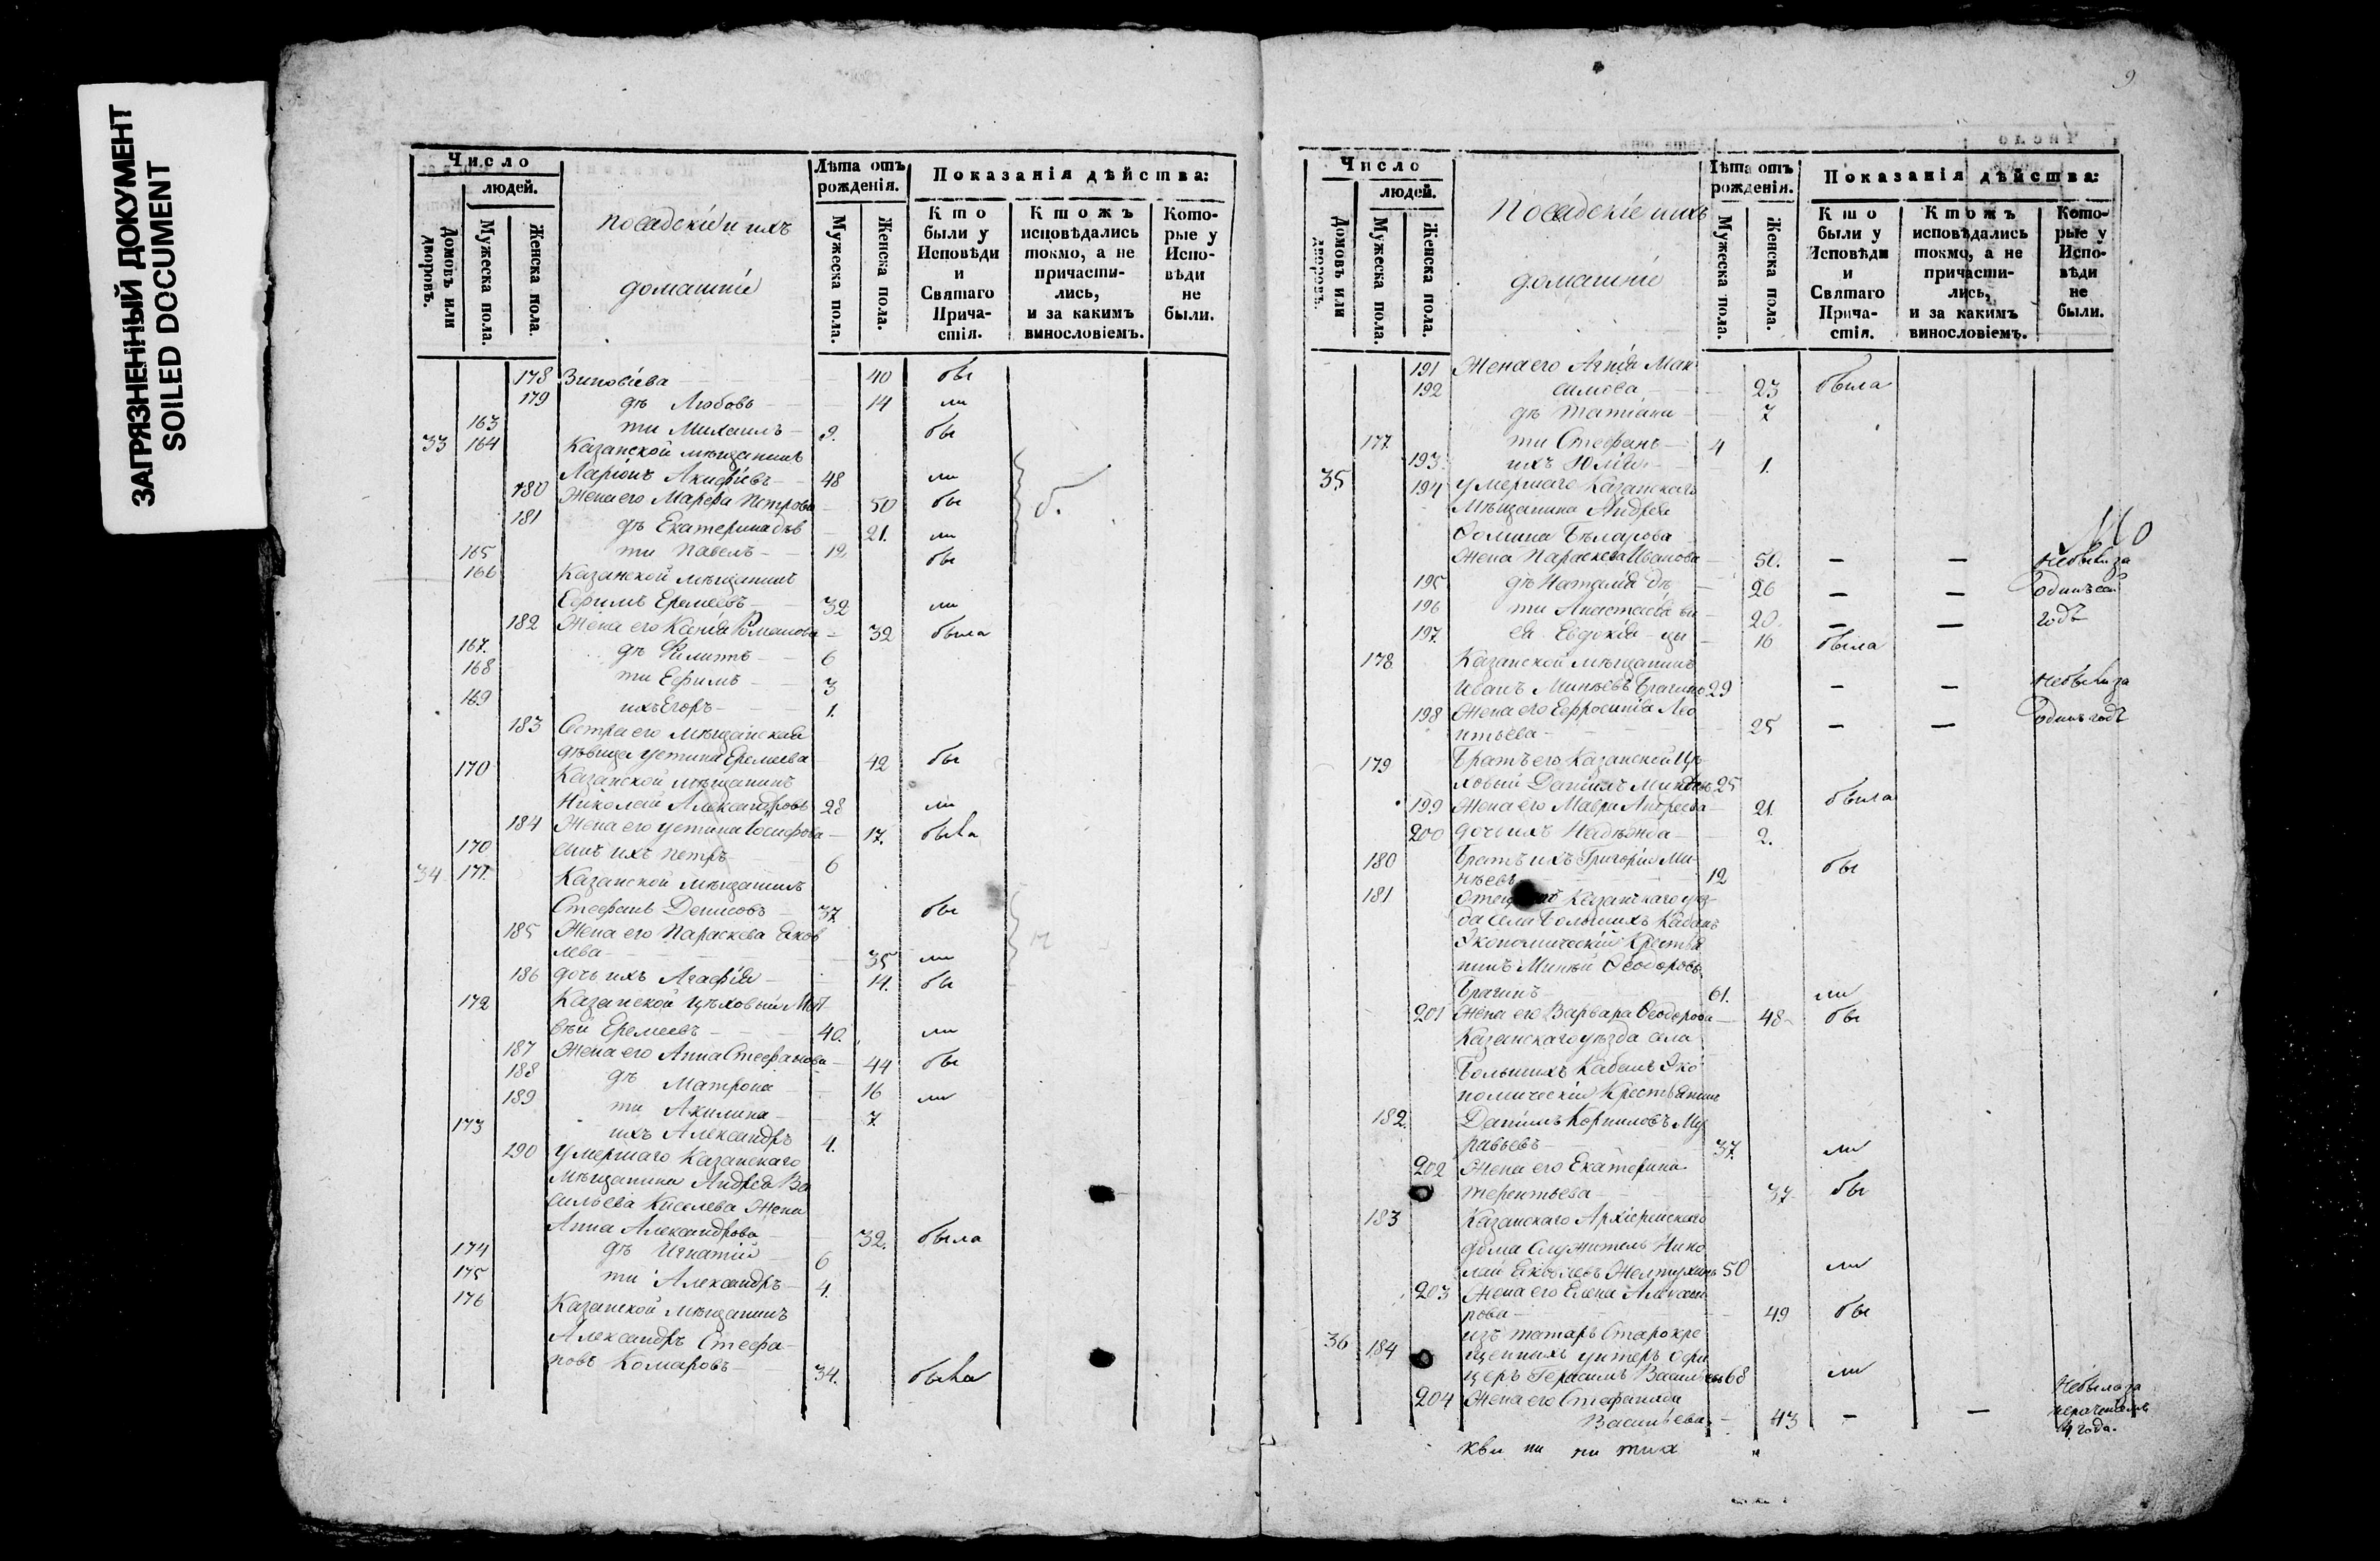 ЗАГРЯЗНЕННЫЙ ДОКУМЕНТ
SOILED DOCUMENT
Число
людей.
Домовъ или дворовъ.
Мужеска пола.
Женска пола.
Посадскіи ихъ
домашніи
Лѣта отъ рожденія.
Мужеска пола.
Женска пола.
Показанія дѣйства:
Кто были у Исповѣди и Святаго Причастія.
Ктожъ исповѣдались токмо, а не причастились, и за какимъ винословіемъ.
Которые у Исповѣди не были.
178 Зиновіева 40 бы
179 дѣ Любовь 14 ли
163 ти Михаилъ 9. бы
33 164 Казанской мѣщанинъ
Ларіонъ 48 ли
180 Жена его Марѳа Петрова 50 бы
181 дѣ Екатерина 21. ли
165 ти Павелъ 19. бы
166 Казанской мѣщанинъ
Ефимъ Еремеевъ 32 ли
182 Жена его Романова 32 была
167. дѣ Филиппъ 6
168 ти Ефимъ 3
169 ихъ Егоръ 1.
183 Сестра его мѣщанская
дѣвица Устина Еремеева 42 бы
170 Казанской мѣщанинъ
Николай Александровъ 28 ли
184 Жена его Устина Іосифова 17. была
170 сынъ ихъ Петръ 6
34 171. Казанской мѣщанинъ
Стефанъ Денисовъ 37 бы
185 Жена его Параскева Яков
лева 35 ли
186 дочь ихъ Агафія 14. бы
172 Казанской цѣховый Мат
вѣй Еремеевъ 40. ли
187 Жена его Анна Стефанова 44 бы
188 дѣ Матрона 16 ли
189 ти Акилина 7
173 ихъ Александръ 4.
190 Умершаго Казанскаго
Мѣщанина Андрея Ва
сильева Киселева Жена
Анна Александрова 32. была
174 дѣ Игнатій 6
175 ти Александръ 4.
176 Казанской мѣщанинъ
Александръ Стефа
новъ Комаровъ 34.
9
Число
людей.
Домовъ или дворовъ.
Мужеска пола.
Женска пола.
Посадскіе ихъ
домашніи
Лѣта отъ рожденія.
Мужеска пола.
Женска пола.
Показанія дѣйства:
Кто были у Исповѣди и Святаго Причастія.
Ктожъ исповѣдались токмо, а не причастились, и за какимъ винословіемъ.
Которые у Исповѣди не были.
191 Жена его Агнія Мак
192 симова 23 была
дѣ Татіана 7
177. ти Стефанъ 4
193. ихъ Юлія 1.
35 194 Умершаго Казанскаго
Мѣщанина Андрея
Фомина
Жена Параскева Иванова 50. — — Небыли за
195 дѣ Наталія 26 — — одинъ сей
196 ти Анастасія 20. — — годъ
197. ея Евдокія 16 была
178 Казанской мѣщанинъ
Иванъ Минѣевъ Брагинъ 29 — — Небыли за
198 Жена его Евфросинія Лео
нтьева 25 — — одинъ годъ
179 Братъ его Казанской Цѣ
ховый Даніилъ Минѣевъ 25
199 Жена его Мавра Андреева 21. была
200 дочь ихъ Надежда 2.
180 Братъ ихъ Григорій Ми
нѣевъ 12 бы
181 Отецъ Казанскаго уѣз
да села Большихъ Кабанъ
Экономическій Крестья
нинъ Миней Ѳеодоровъ
Брагинъ 61. ли
201 Жена его Варвара Ѳеодорова 48 бы
Казанскаго уѣзда села
Большихъ Кабанъ Эко
номическій Крестьянинъ
182. Даніилъ Корниловъ Му
равьевъ 37. ли
202 Жена его Екатерина
Терентьева 37 бы
183 Казанскаго Архіерейскаго
дома Служитель Нико
лай Яковлевъ Желтухинъ 50 ли
203 Жена его Елена Александ
рова 49 бы
36 184 изъ татаръ Старокре
щенныхъ унтеръ офи
церъ Герасимъ Васильевъ 68 ли
204 Жена его Стефанида
Васильева 43 — — Небыла за
4 года.